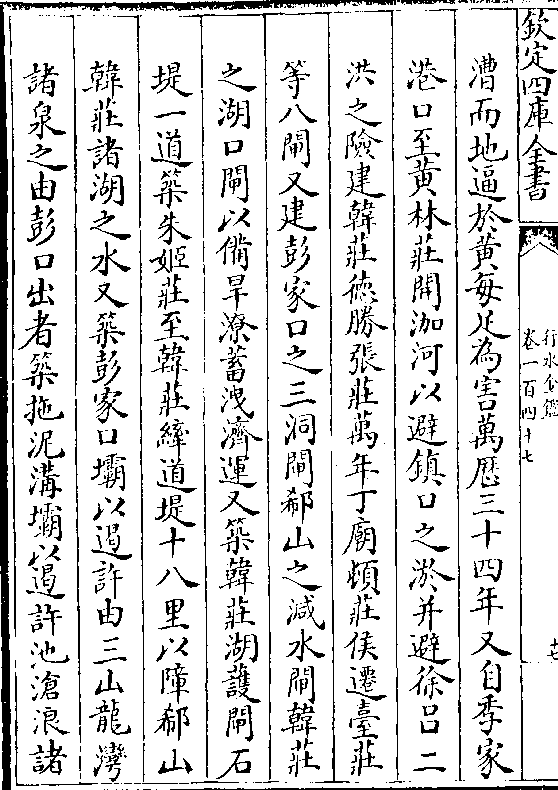 欽定四庫全書
行水金鑑
卷一百四十七
十七
漕而地逼於黄每足為害萬厯三十四年又自季家
港口至黄林莊開泇河以避鎮口之淤并避徐吕二
洪之險建韓莊德勝張莊萬年丁廟頓莊侯遷臺莊
等八閘又建彭家口之三洞閘郗山之減水閘韓莊
之湖口閘以備旱潦蓄洩濟運又築韓莊湖護閘石
堤一道築朱姬莊至韓莊縴道堤十八里以障郗山
韓莊諸湖之水又築彭家口壩以遏許由三山龍灣
諸泉之由彭口出者築拖泥溝壩以遏許池滄浪諸